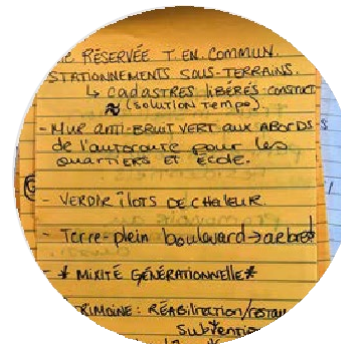 RÉSERVÉE T. EN COMMUN.
STATIONNEMENTS SOUS-TERRAINS.
↳ CADASTRES LIBÉRÉS CONSTRUCT
≈ (SOLUTION TEMPO).
- MUR ANTI-BRUIT VERT AUX ABORDS
de l'autoroute pour les
quartiers et école.
- VERDIR ÎLOTS DE CHALEUR.
- Terre-plein boulevard → arbres
- * MIXITÉ GÉNÉRATIONNELLE *
RIMOINE : RÉHABILITATION/restau
Subventio